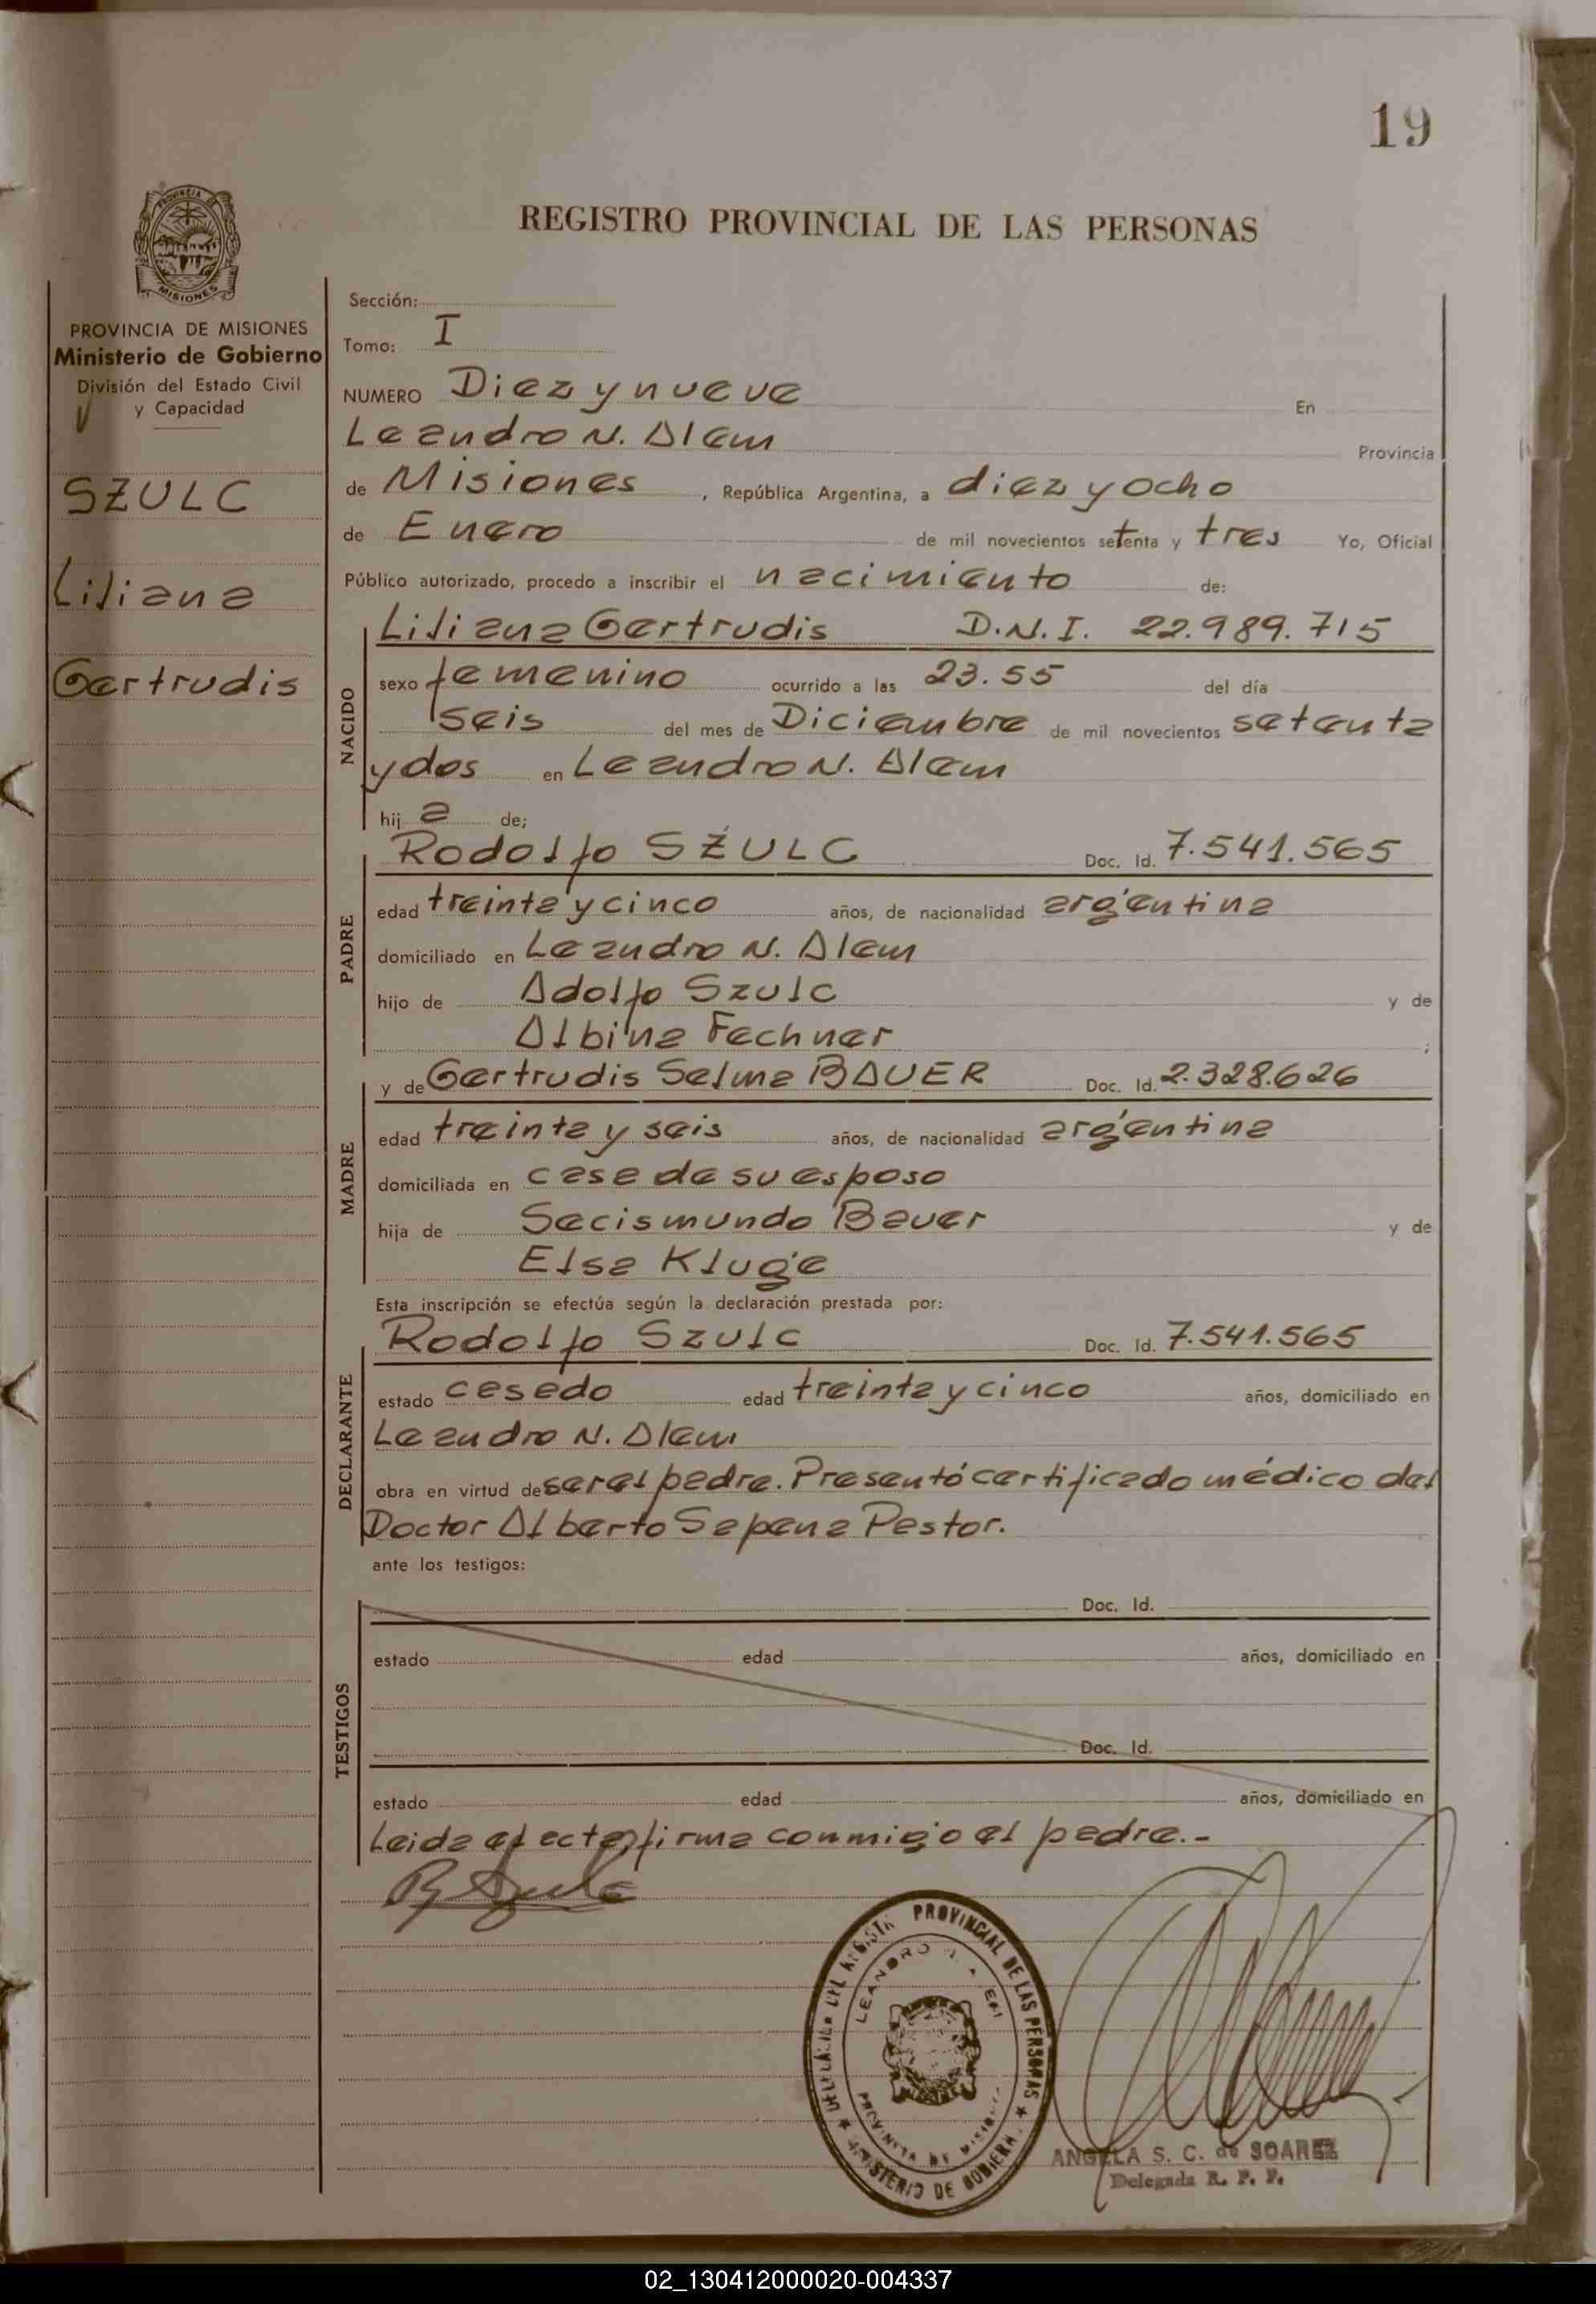 19
REGISTRO PROVINCIAL DE LAS PERSONAS
PROVINCIA DE
MISIONES
PROVINCIA DE MISIONES
Ministerio de Gobierno
División del Estado Civil
y Capacidad
SZULC
Liliana
Gertrudis
Sección:
Tomo: I
NUMERO Diez y nueve En
Leandro N. Alem Provincia
de Misiones, República Argentina, a diez y ocho
de Enero de mil novecientos setenta y tres Yo, Oficial
Público autorizado, procedo a inscribir el nacimiento de:
NACIDO
Liliana Gertrudis D.N.I. 22.989.715
sexo femenino ocurrido a las 23.55 del día
seis del mes de Diciembre de mil novecientos setenta
y dos en Leandro N. Alem
hij a de;
PADRE
Rodolfo SZULC Doc. Id. 7.541.565
edad treinta y cinco años, de nacionalidad argentina
domiciliado en Leandro N. Alem
hijo de Adolfo Szulc y de
Albina Fechner ;
MADRE
y de Gertrudis Selma BAUER Doc. Id. 2.328.626
edad treinta y seis años, de nacionalidad argentina
domiciliada en casa de su esposo
hija de Secismundo Bauer y de
Elsa Kluge
Esta inscripción se efectúa según la declaración prestada por:
DECLARANTE
Rodolfo Szulc Doc. Id. 7.541.565
estado casado edad treinta y cinco años, domiciliado en
Leandro N. Alem
obra en virtud de ser el padre. Presentó certificado médico del
Doctor Alberto Sapena Pastor.
ante los testigos:
TESTIGOS
Doc. Id.
estado edad años, domiciliado en
Doc. Id.
estado edad años, domiciliado en
Leida el acta, firma conmigo el padre.-
R Szulc
PROVINCIAL DE LAS PERSONAS
MINISTERIO DE GOBIERN.
LEANDRO N. ALEM
PROVINCIA DE MISIONES
ANGELA S. C. de SOAREZ
Delegada R. P. P.
02_130412000020-004337